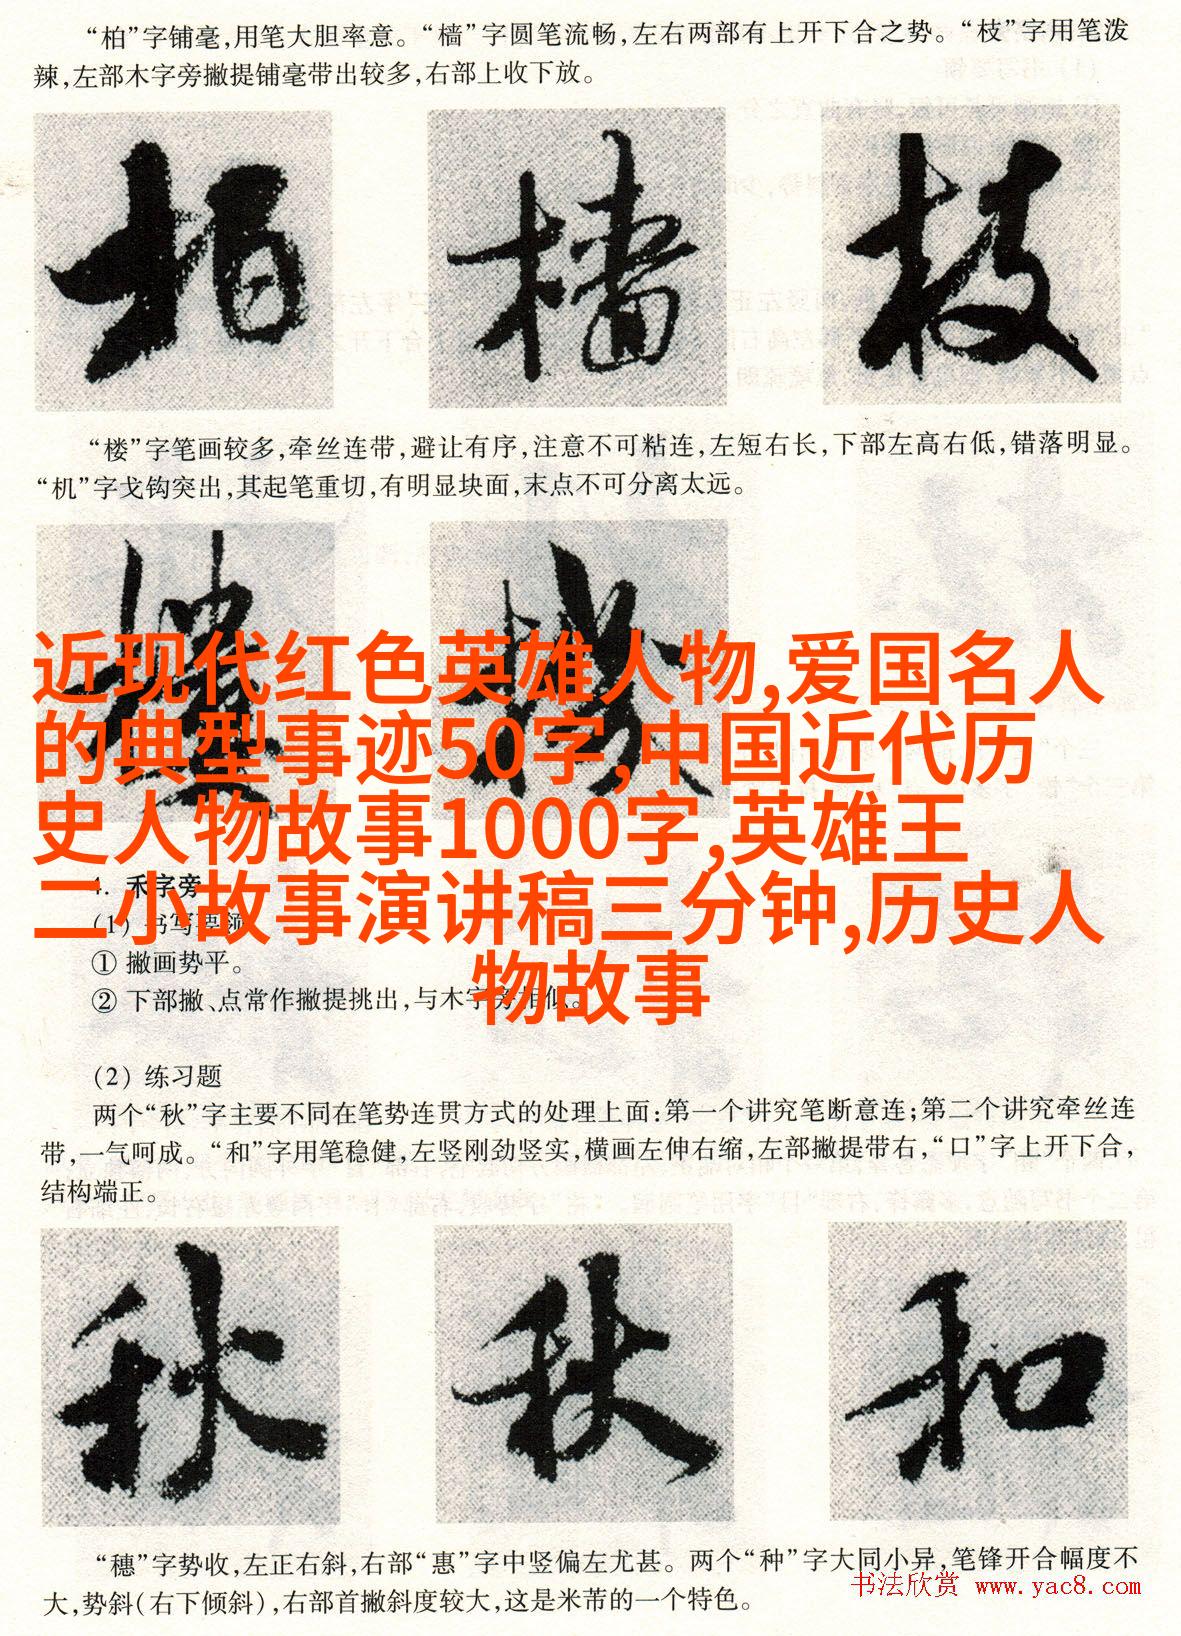 “柏”字铺毫,用笔大胆率意。“樯”字圆笔流畅,左右两部有上开下合之势。“枝”字用笔泼
辣,左部木字旁撇提铺毫带出较多,右部上收下放。
柏 樯 枝
“楼”字笔画较多,牵丝连带,避让有序,注意不可粘连,左短右长,下部左高右低,错落明显。
“机”字戈钩突出,其起笔重切,有明显块面,末点不可分离太远。
楼 机
近现代红色英雄人物,爱国名人
的典型事迹50字,中国近代历
史人物故事1000字,英雄王
二小故事演讲稿三分钟,历史人
物故事
4. 禾字旁
(1) 书写要领
① 撇画势平。
② 下部撇、点常作撇提挑出,与木字旁相似。
(2) 练习题
两个“秋”字主要不同在笔势连贯方式的处理上面:第一个讲究笔断意连;第二个讲究牵丝连
带,一气呵成。“和”字用笔稳健,左竖刚劲竖实,横画左伸右缩,左部撇提带右,“口”字上开下合,
结构端正。
秋 秋 和
“穗”字势收,左正右斜,右部“惠”字中竖偏左尤甚。两个“种”字大同小异,笔锋开合幅度不
大,势斜(右下倾斜),右部首撇斜度较大,这是米芾的一个特色。
书法欣赏 www.yac8.com